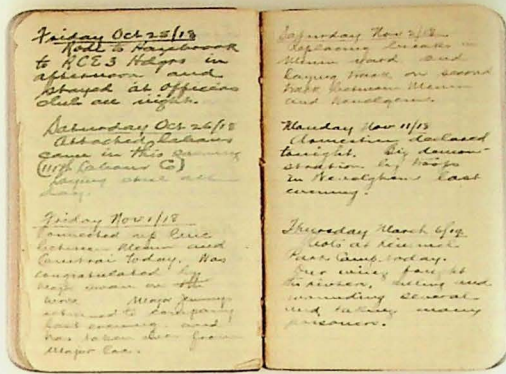 Friday Oct 25/18
Rode to Hazebrook
to RCE 3 Hdqrs in
afternoon and
stayed at officers
club all night.
Saturday Oct 26/18
Attached
came in this evening
laying steel all
day.
Friday Nov 1/18
Connected up line
between Menin and
today. Was
congratulated by
on the
work Major
returned to company
last evening and
has taken over from
Major
Saturday Nov 2/18
Replacing breaks in
Menin yard and
laying track on second
track between Menin
and
Monday Nov 11/18
Armistice declared
tonight. Big demon-
stration by troops
in last
evening.
Thursday March 6/19
Riots at Kinmel
Park Camp today.
Our wing fought
killing and
wounding several
and taking many
prisoners.